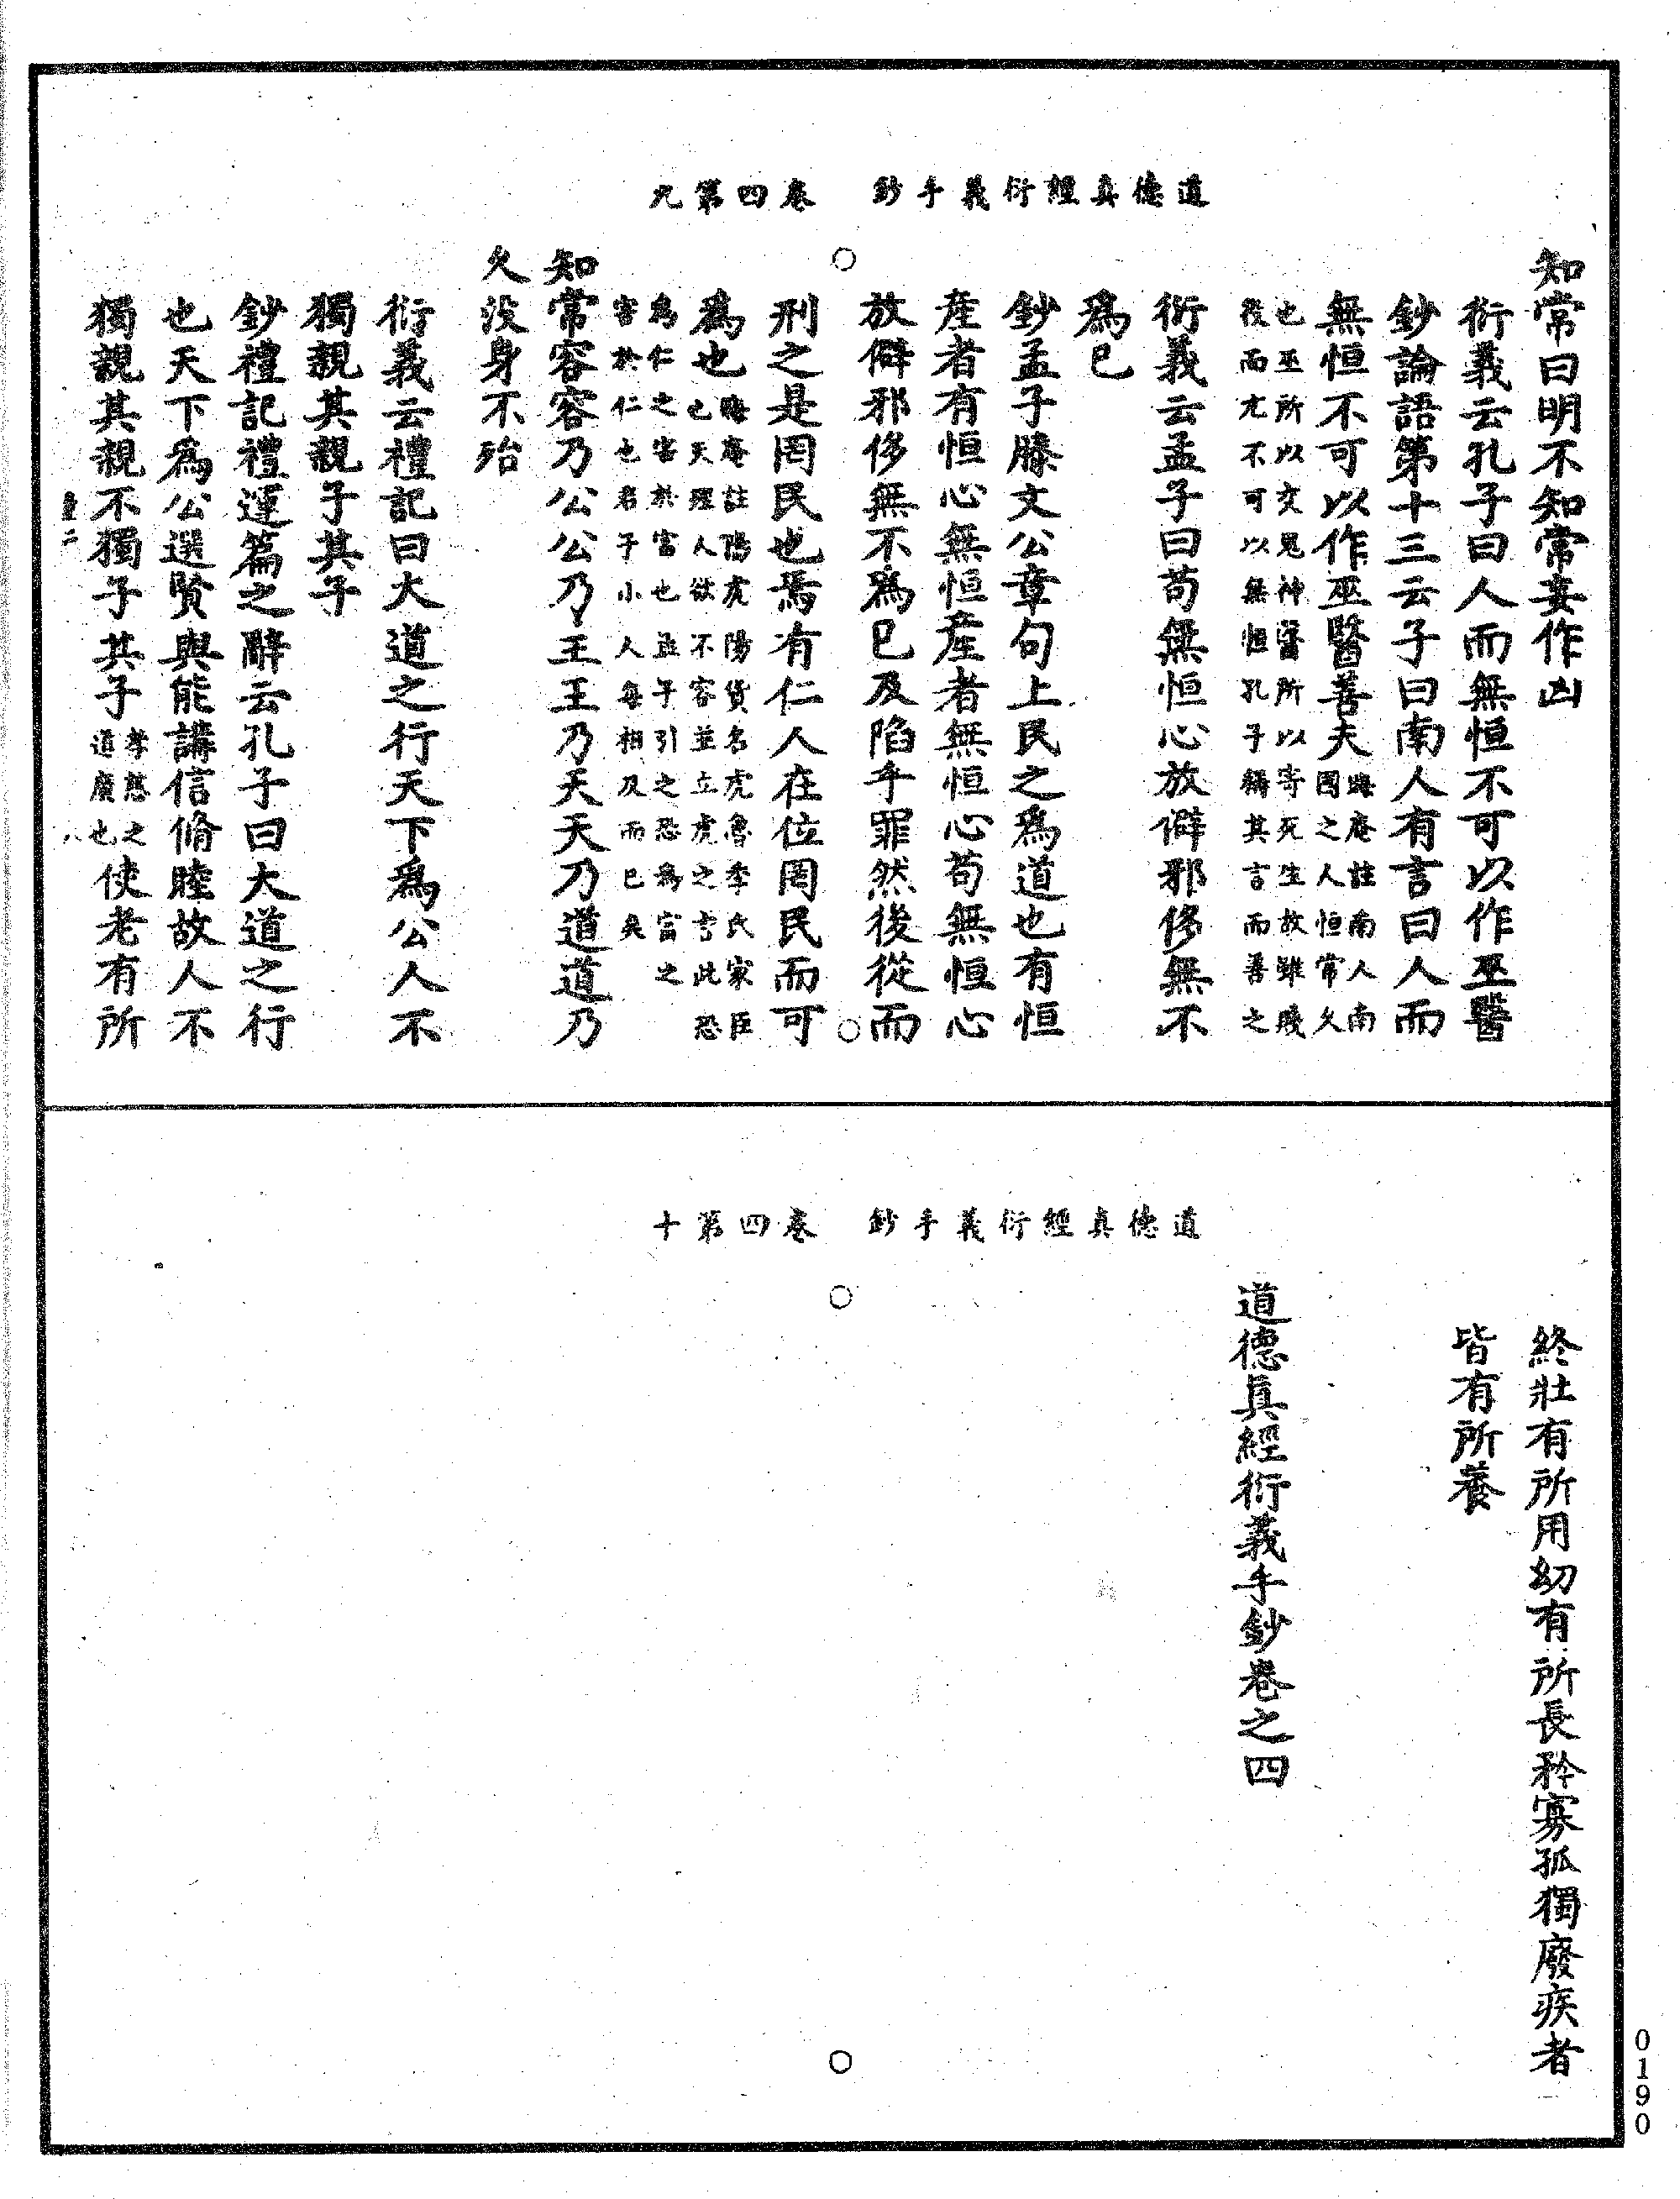 道德真經衍義手鈔　卷四第九
知常曰明不知常妄作凶
衍義云孔子曰人而無恒不可以作巫醫
鈔論語第十三云子曰南人有言曰人而
無恒不可以作巫醫善夫晦庵註南人南
國之人恒常久
也巫所以交鬼神醫所以寄死生故雖賤
役而尤不可以無恒孔子稱其言而善之
衍義云孟子曰苟無恒心放僻邪侈無不
爲已
鈔孟子滕文公章句上民之爲道也有恒
産者有恒心無恒産者無恒心苟無恒心
放僻邪侈無不爲已及陷乎罪然後從而
刑之是罔民也焉有仁人在位罔民而可
爲也晦庵註陽虎陽貨名虎魯季氏家臣
也天理人欲不容並立虎之言此恐
爲仁之害於富也孟子引之恐爲富之
害於仁也君子小人每相反而已矣
知常容容乃公公乃王王乃天天乃道道乃
久沒身不殆
衍義云禮記曰大道之行天下爲公人不
獨親其親子其子
鈔禮記禮運篇之辭云孔子曰大道之行
也天下爲公選賢與能講信脩睦故人不
獨親其親不獨子其子孝慈之
道廣也使老有所
量二　八
道德真經衍義手鈔　卷四第十
終壯有所用幼有所長矜寡孤獨廢疾者
皆有所養
道德眞經衍義手鈔卷之四
0190